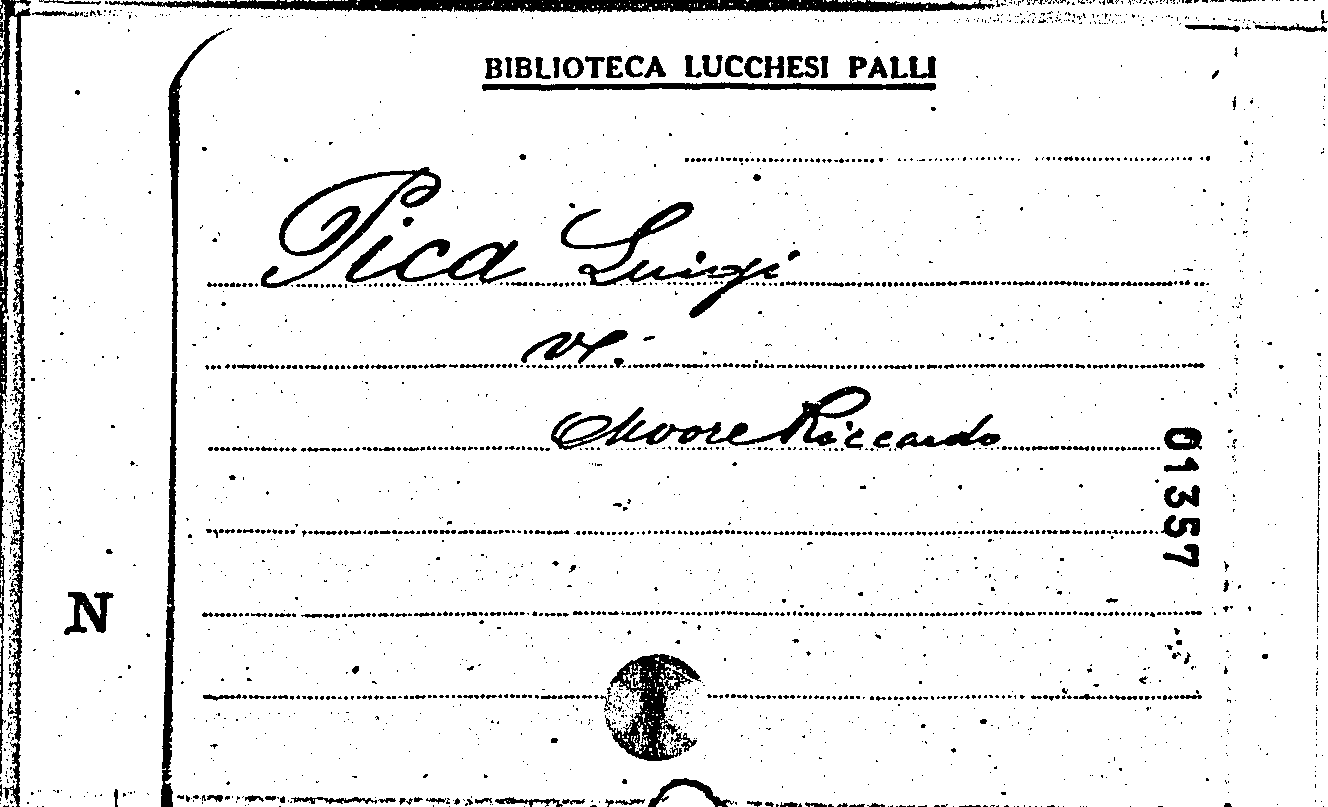 BIBLIOTECA LUCCHESI PALLI
Pica Luigi
V.
Moore Riccardo
01357
N